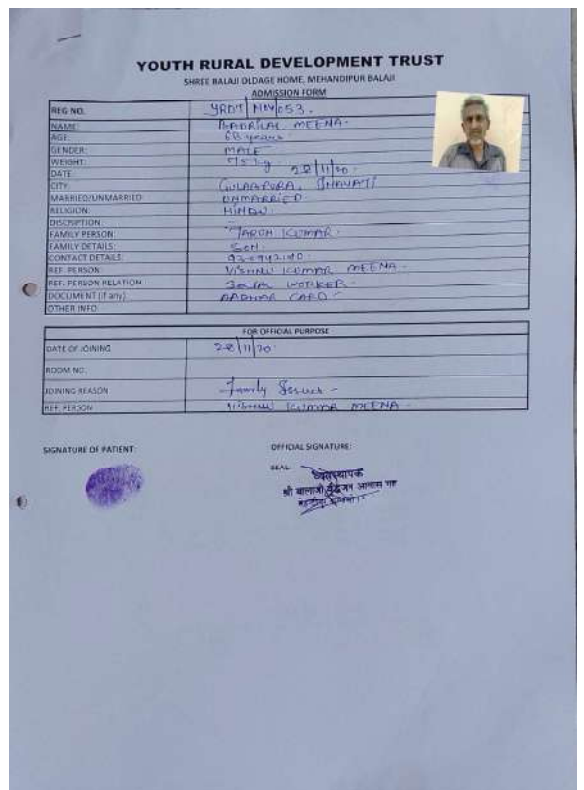 YOUTH RURAL DEVELOPMENT TRUST
SHREE BALAJI OLDAGE HOME, MEHANDIPUR BALAJI
ADMISSION FORM
REG NO. YRDT/NOV/053.
NAME: BADRILAL MEENA.
AGE: 68 years
GENDER: MALE
WEIGHT:
DATE: 28/11/20.
CITY:
MARRIED/UNMARRIED UNMARRIED.
RELIGION: HINDU
DISCRIPTION:
FAMILY PERSON: KUMAR.
FAMILY DETAILS: SON.
CONTACT DETAILS:
REF. PERSON VISHNU KUMAR MEENA.
REF. PERSON RELATION WORKER.
DOCUMENT (if any) AADHAR CARD
OTHER INFO.
FOR OFFICIAL PURPOSE
DATE OF JOINING 28/11/20.
ROOM NO.
JOINING REASON Family Issues -
REF. PERSON VISHNU KUMAR MEENA.
SIGNATURE OF PATIENT: OFFICIAL SIGNATURE:
SEAL
व्यवस्थापक
श्री बालाजी वृद्धजन आवास गृह